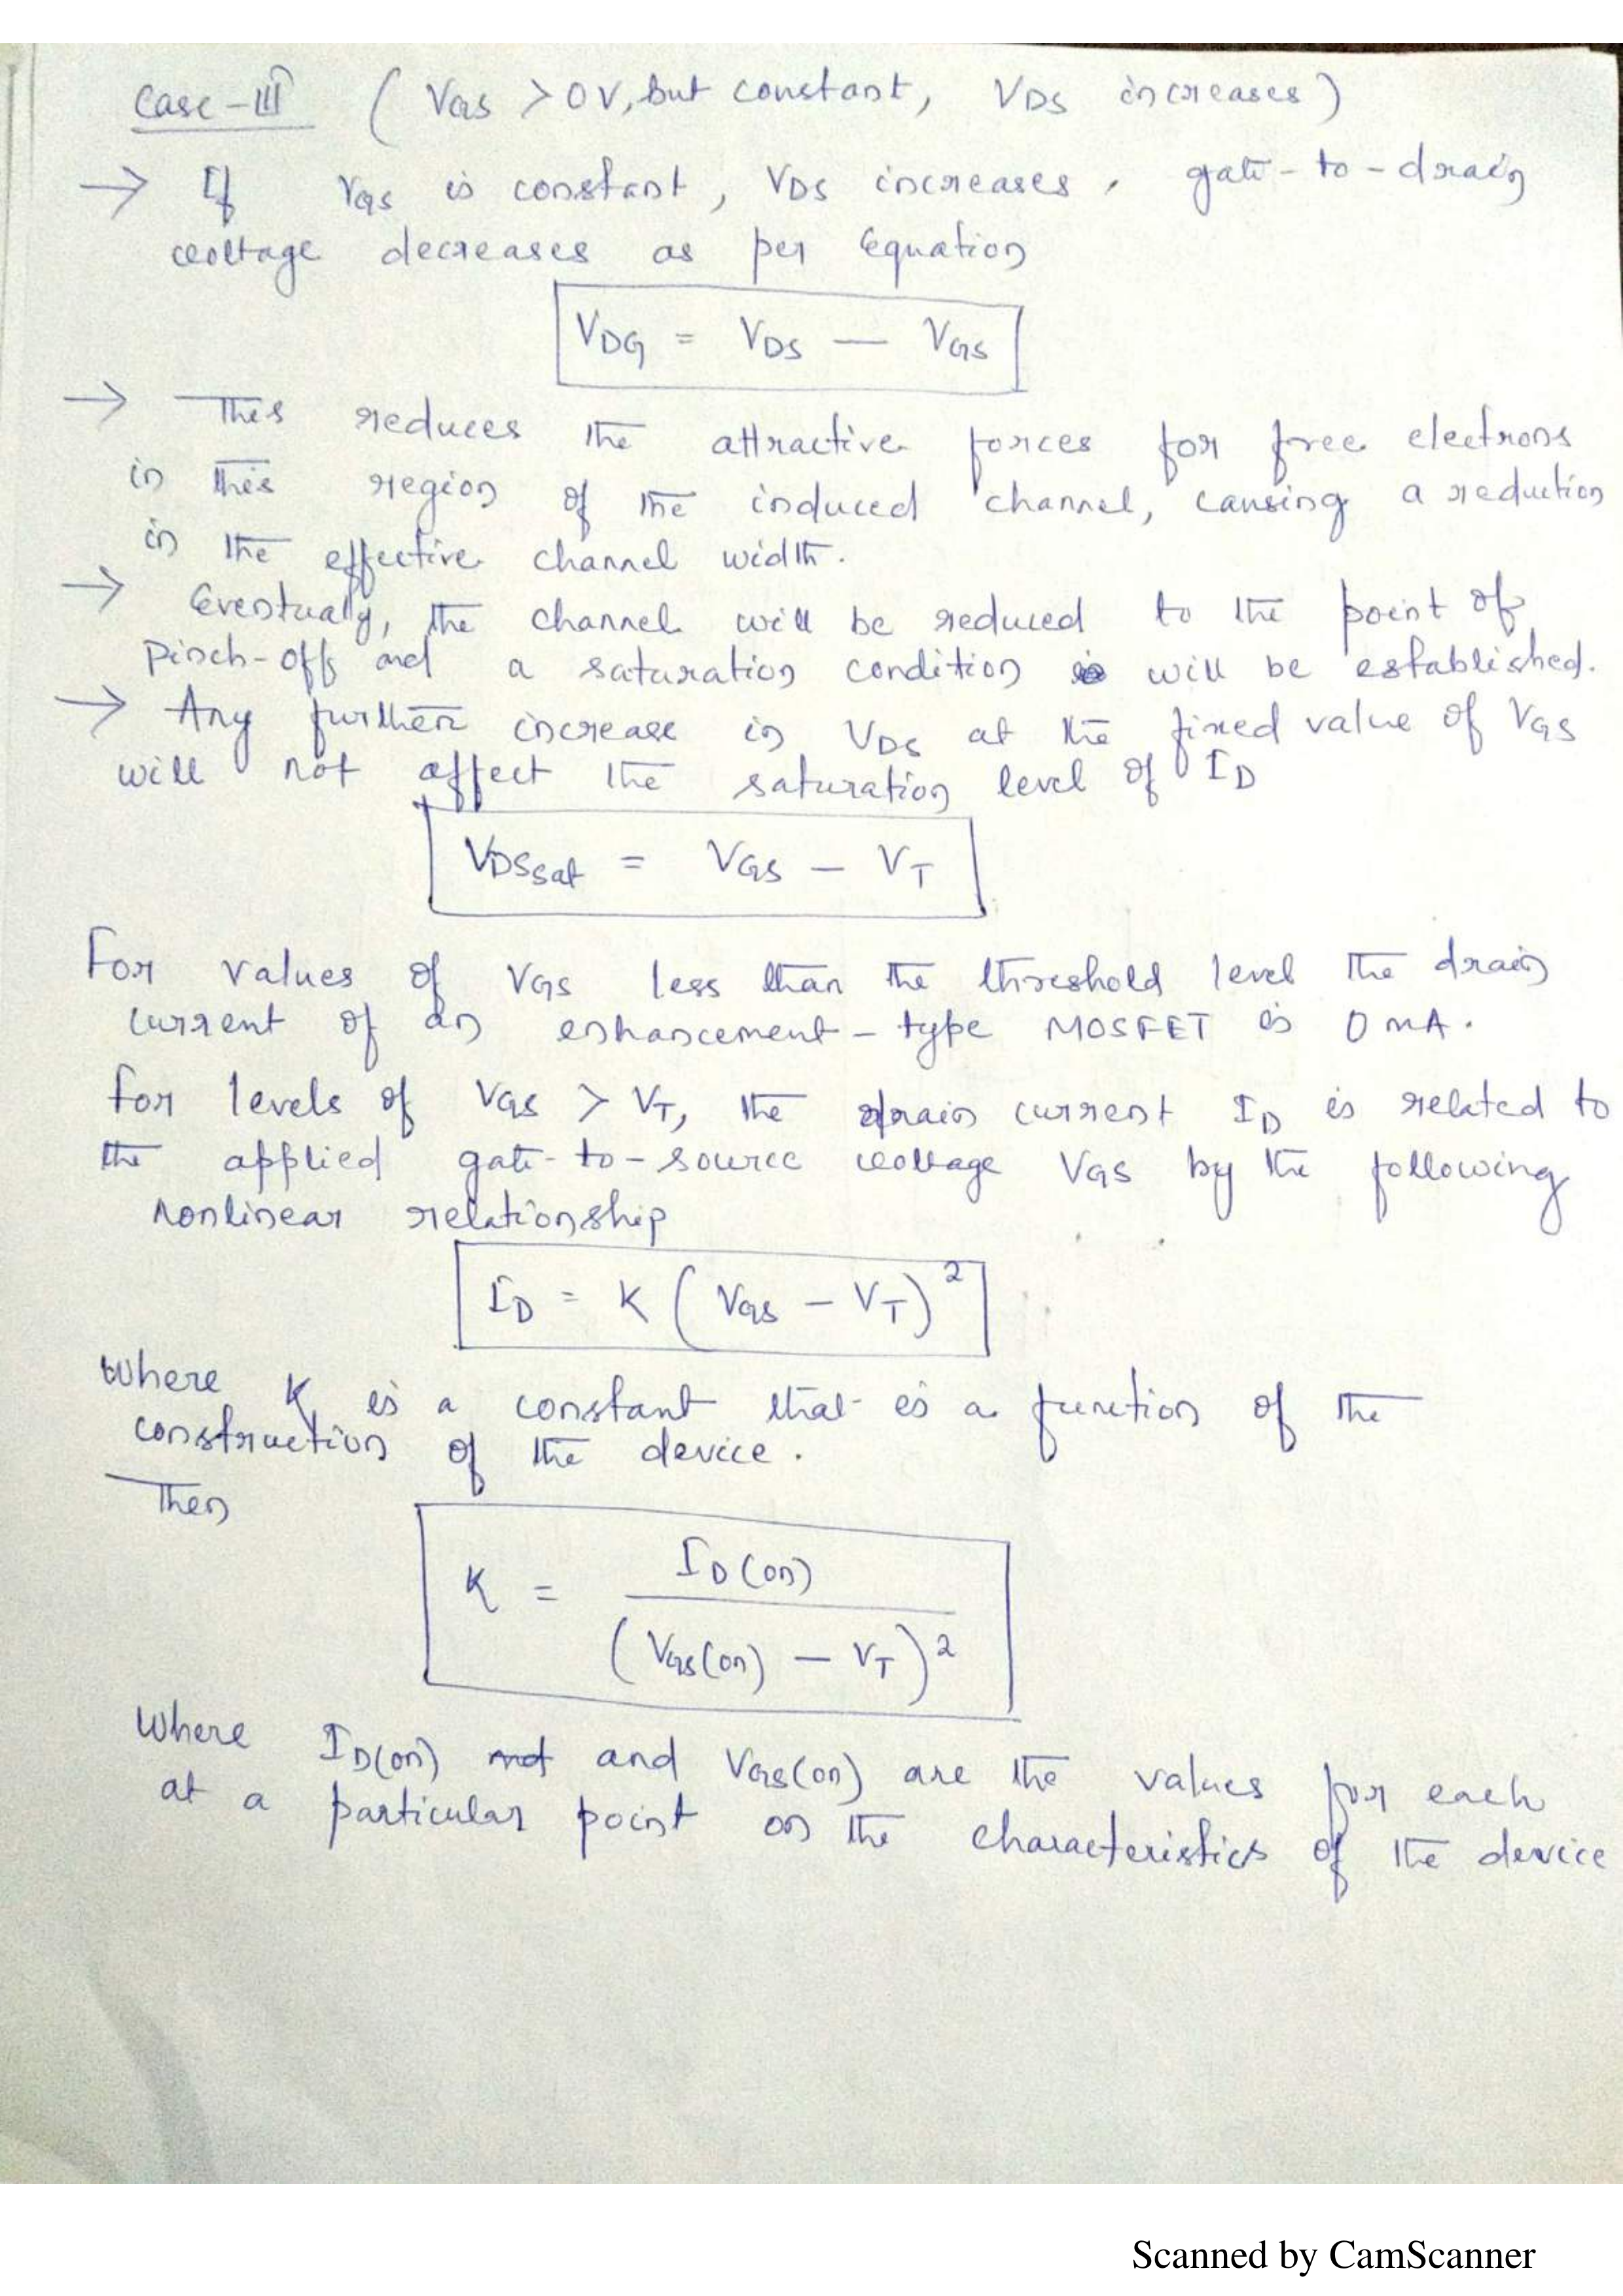 Case-III ( VGS > 0V, but constant, VDS increases)
→ If VGS is constant, VDS increases, gate-to-drain
voltage decreases as per equation
VDG = VDS — VGS
→ This reduces the attractive forces for free electrons
in this region of the induced channel, causing a reduction
in the effective channel width.
→ Eventually, the channel will be reduced to the point of
pinch-off and a saturation condition will be established.
→ Any further increase in VDS at the fixed value of VGS
will not affect the saturation level of ID
VDSsat = VGS – VT
For values of VGS less than the threshold level the drain
current of an enhancement-type MOSFET is 0 mA.
For levels of VGS > VT, the drain current ID is related to
the applied gate-to-source voltage VGS by the following
nonlinear relationship
ID = K ( VGS – VT )²
where K is a constant that is a function of the
construction of the device.
Then
K = ID(on)
(VGS(on) – VT)²
Where ID(on) and VGS(on) are the values for each
at a particular point on the characteristics of the device
Scanned by CamScanner